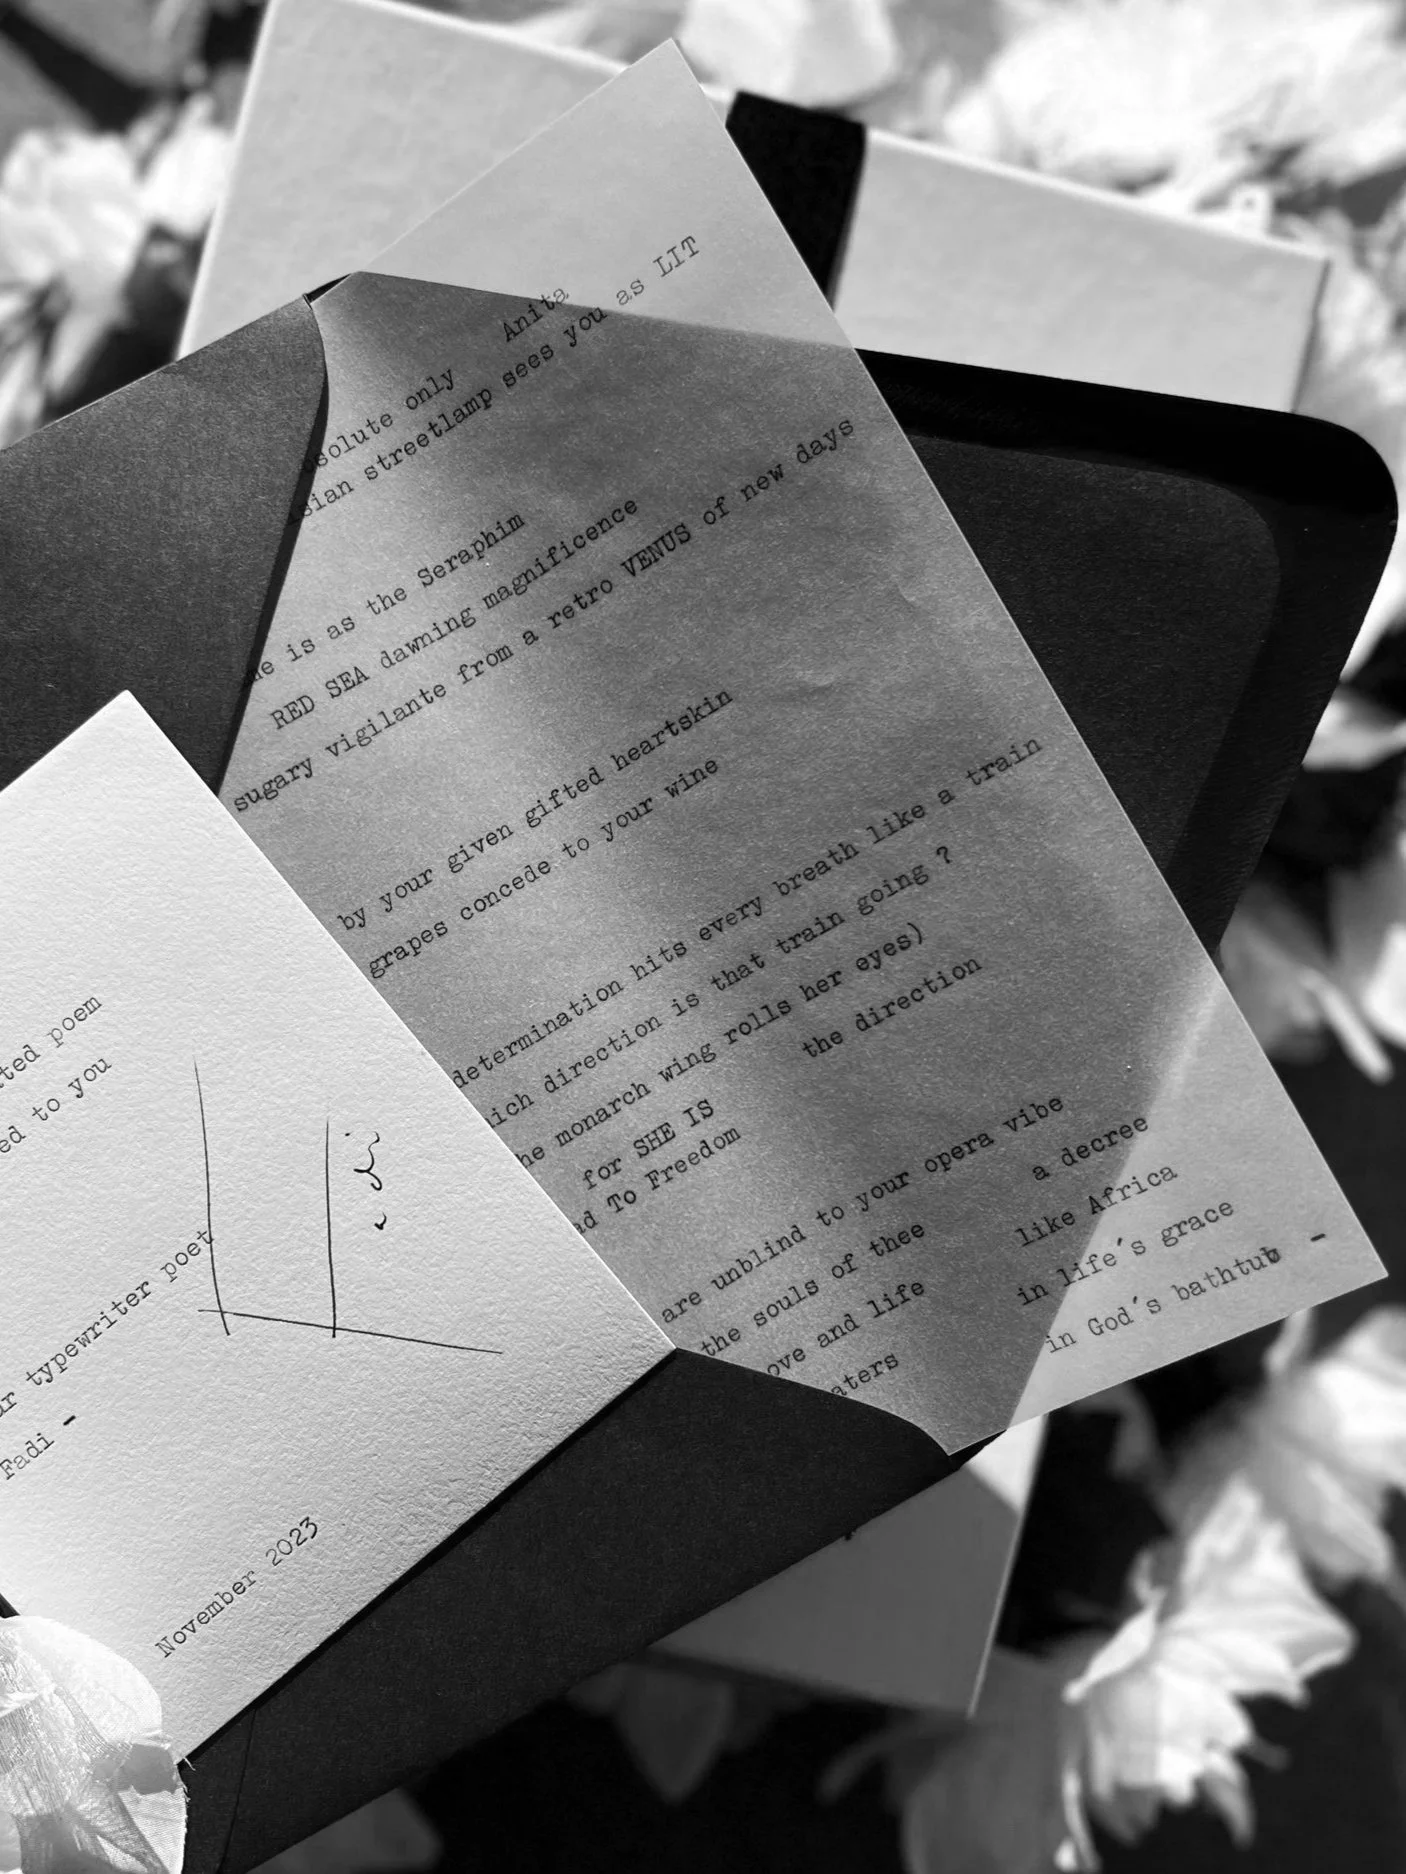 Anita
only
streetlamp sees you as LIT
is as the Seraphim
RED SEA dawning magnificence
sugary vigilante from a retro VENUS of new days
by your given gifted heartskin
grapes concede to your wine
determination hits every breath like a train
direction is that train going ?
monarch wing rolls her eyes)
the direction
for SHE IS
To Freedom
are unblind to your opera vibe
a decree
the souls of thee
like Africa
and life
in life's grace
in God's bathtub -
poem
to you
typewriter poet
Fadi -
November 2023